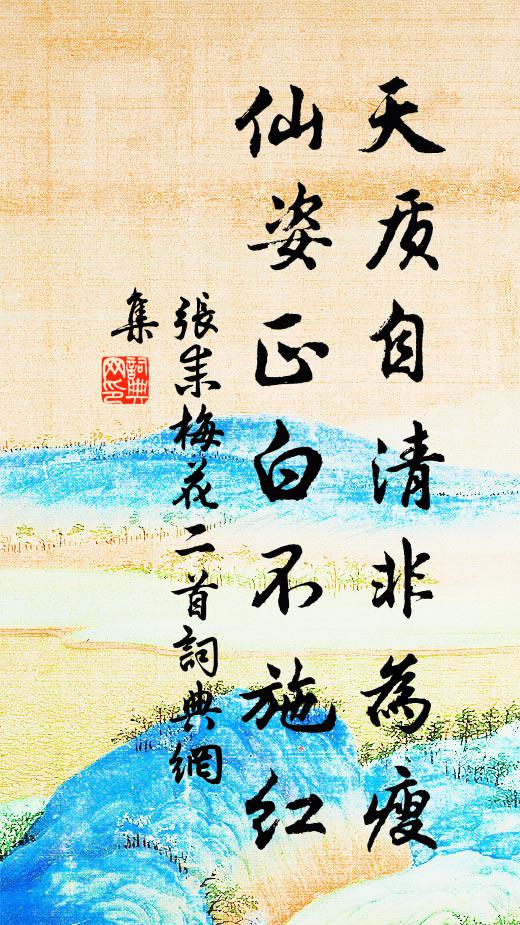 天质自清非為瘦
仙姿正白不施红
張耒梅花二首詞典網
集
詞典
网印